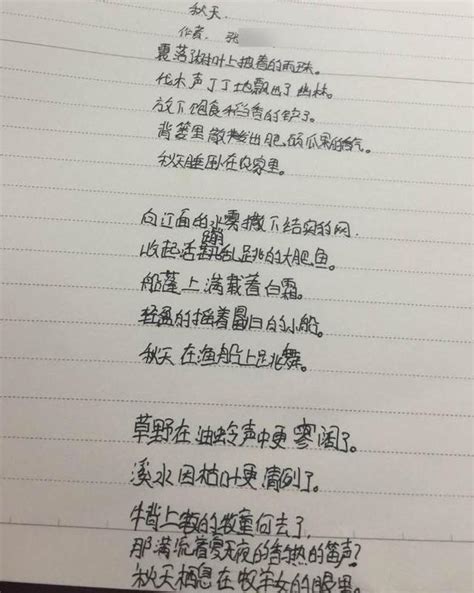 秋天.
作者. 张
震落树叶上披着的雨珠。
伐木声丁丁地飘出了幽林。
放下饱食稻香的镰刀。
背篓里散发出肥硕瓜果的香气。
秋天睡卧在农家里。
向江面的冰雾撒下结实的网.
收起活蹦乱跳的大肥鱼。
船蓬上满载着白霜。
轻盈的摇着归白的小船。
秋天在渔船上跳舞。
草野在油蛉声中更寥阔了。
溪水因枯叶更清列了。
牛背上的牧童何去了.
那满流着夏天夜的香热的笛声?
秋天栖息在牧羊女的眼里。